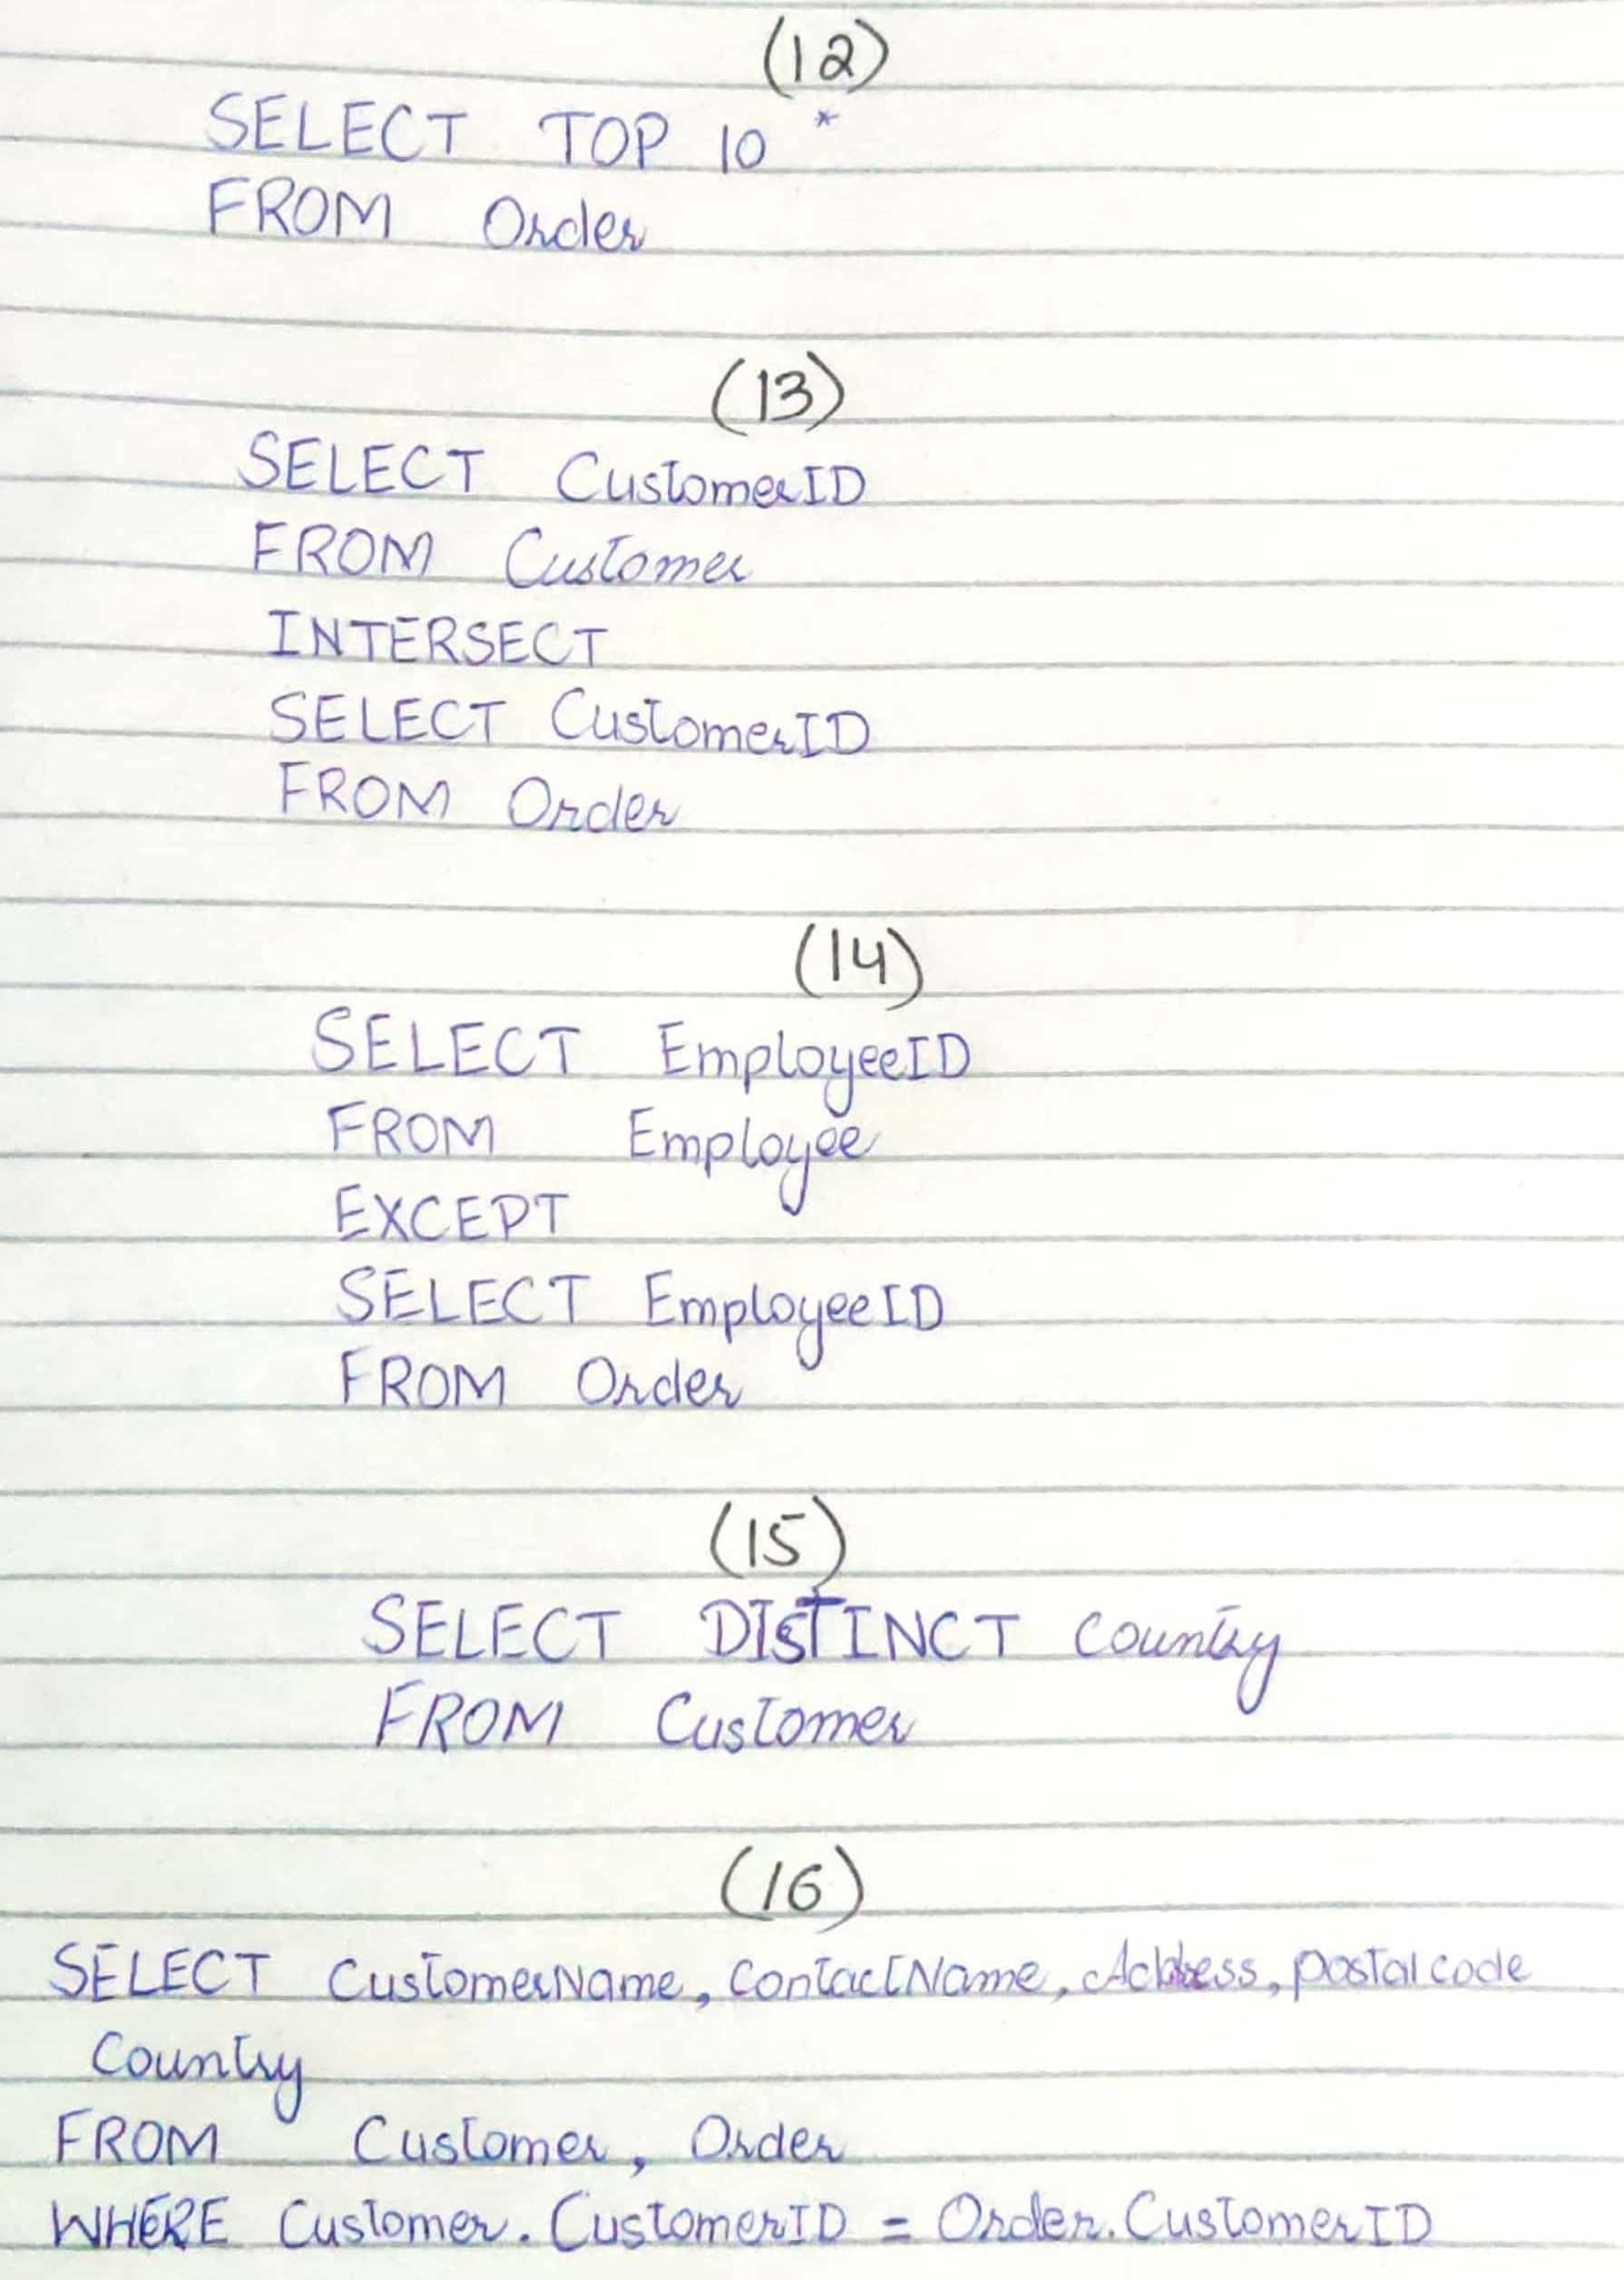 (12)
SELECT TOP 10 *
FROM Order
(13)
SELECT CustomerID
FROM Customer
INTERSECT
SELECT CustomerID
FROM Order
(14)
SELECT EmployeeID
FROM Employee
EXCEPT
SELECT EmployeeID
FROM Order
(15)
SELECT DISTINCT Country
FROM Customer
(16)
SELECT CustomerName, ContactName, Address, postalcode
Country
FROM Customer, Order
WHERE Customer.CustomerID = Order.CustomerID